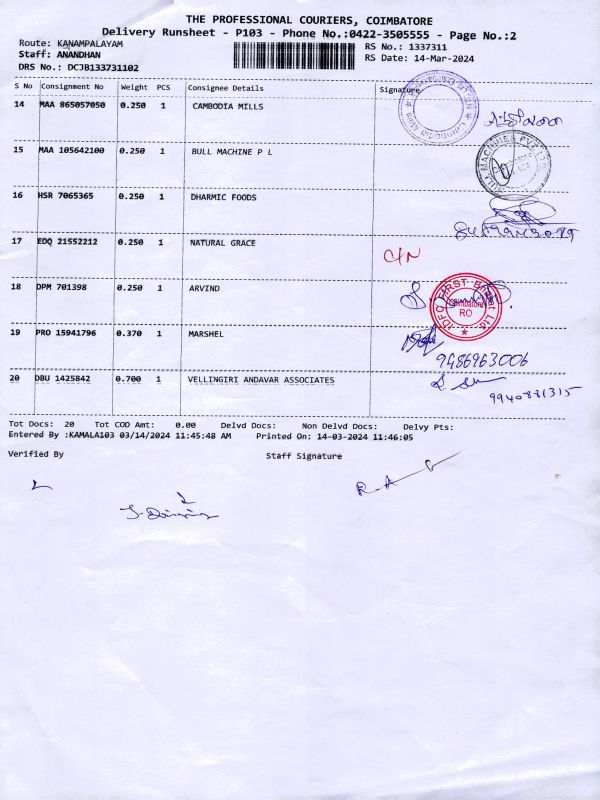 THE PROFESSIONAL COURIERS, COIMBATORE
Delivery Runsheet - P103 - Phone No.:0422-3505555 - Page No.:2
Route: KANAMPALAYAM
RS No.: 1337311
Staff: ANANDHAN
RS Date: 14-Mar-2024
DRS No.: DCJB133731102
S No Consignment No Weight PCS Consignee Details Signature
14 MAA 865057050 0.250 1 CAMBODIA MILLS
15 MAA 105642100 0.250 1 BULL MACHINE P L
16 HSR 7065365 0.250 1 DHARMIC FOODS
17 EDQ 21552212 0.250 1 NATURAL GRACE C/N
18 DPM 701398 0.250 1 ARVIND
IDFC FIRST Bank Ltd
Coimbatore
RO
19 PRO 15941796 0.370 1 MARSHEL
9486963006
20 DBU 1425842 0.700 1 VELLINGIRI ANDAVAR ASSOCIATES
9940881315
Tot Docs: 20 Tot COD Amt: 0.00 Delvd Docs: Non Delvd Docs: Delvy Pts:
Entered By :KAMALA103 03/14/2024 11:45:48 AM Printed On: 14-03-2024 11:46:05
Verified By Staff Signature